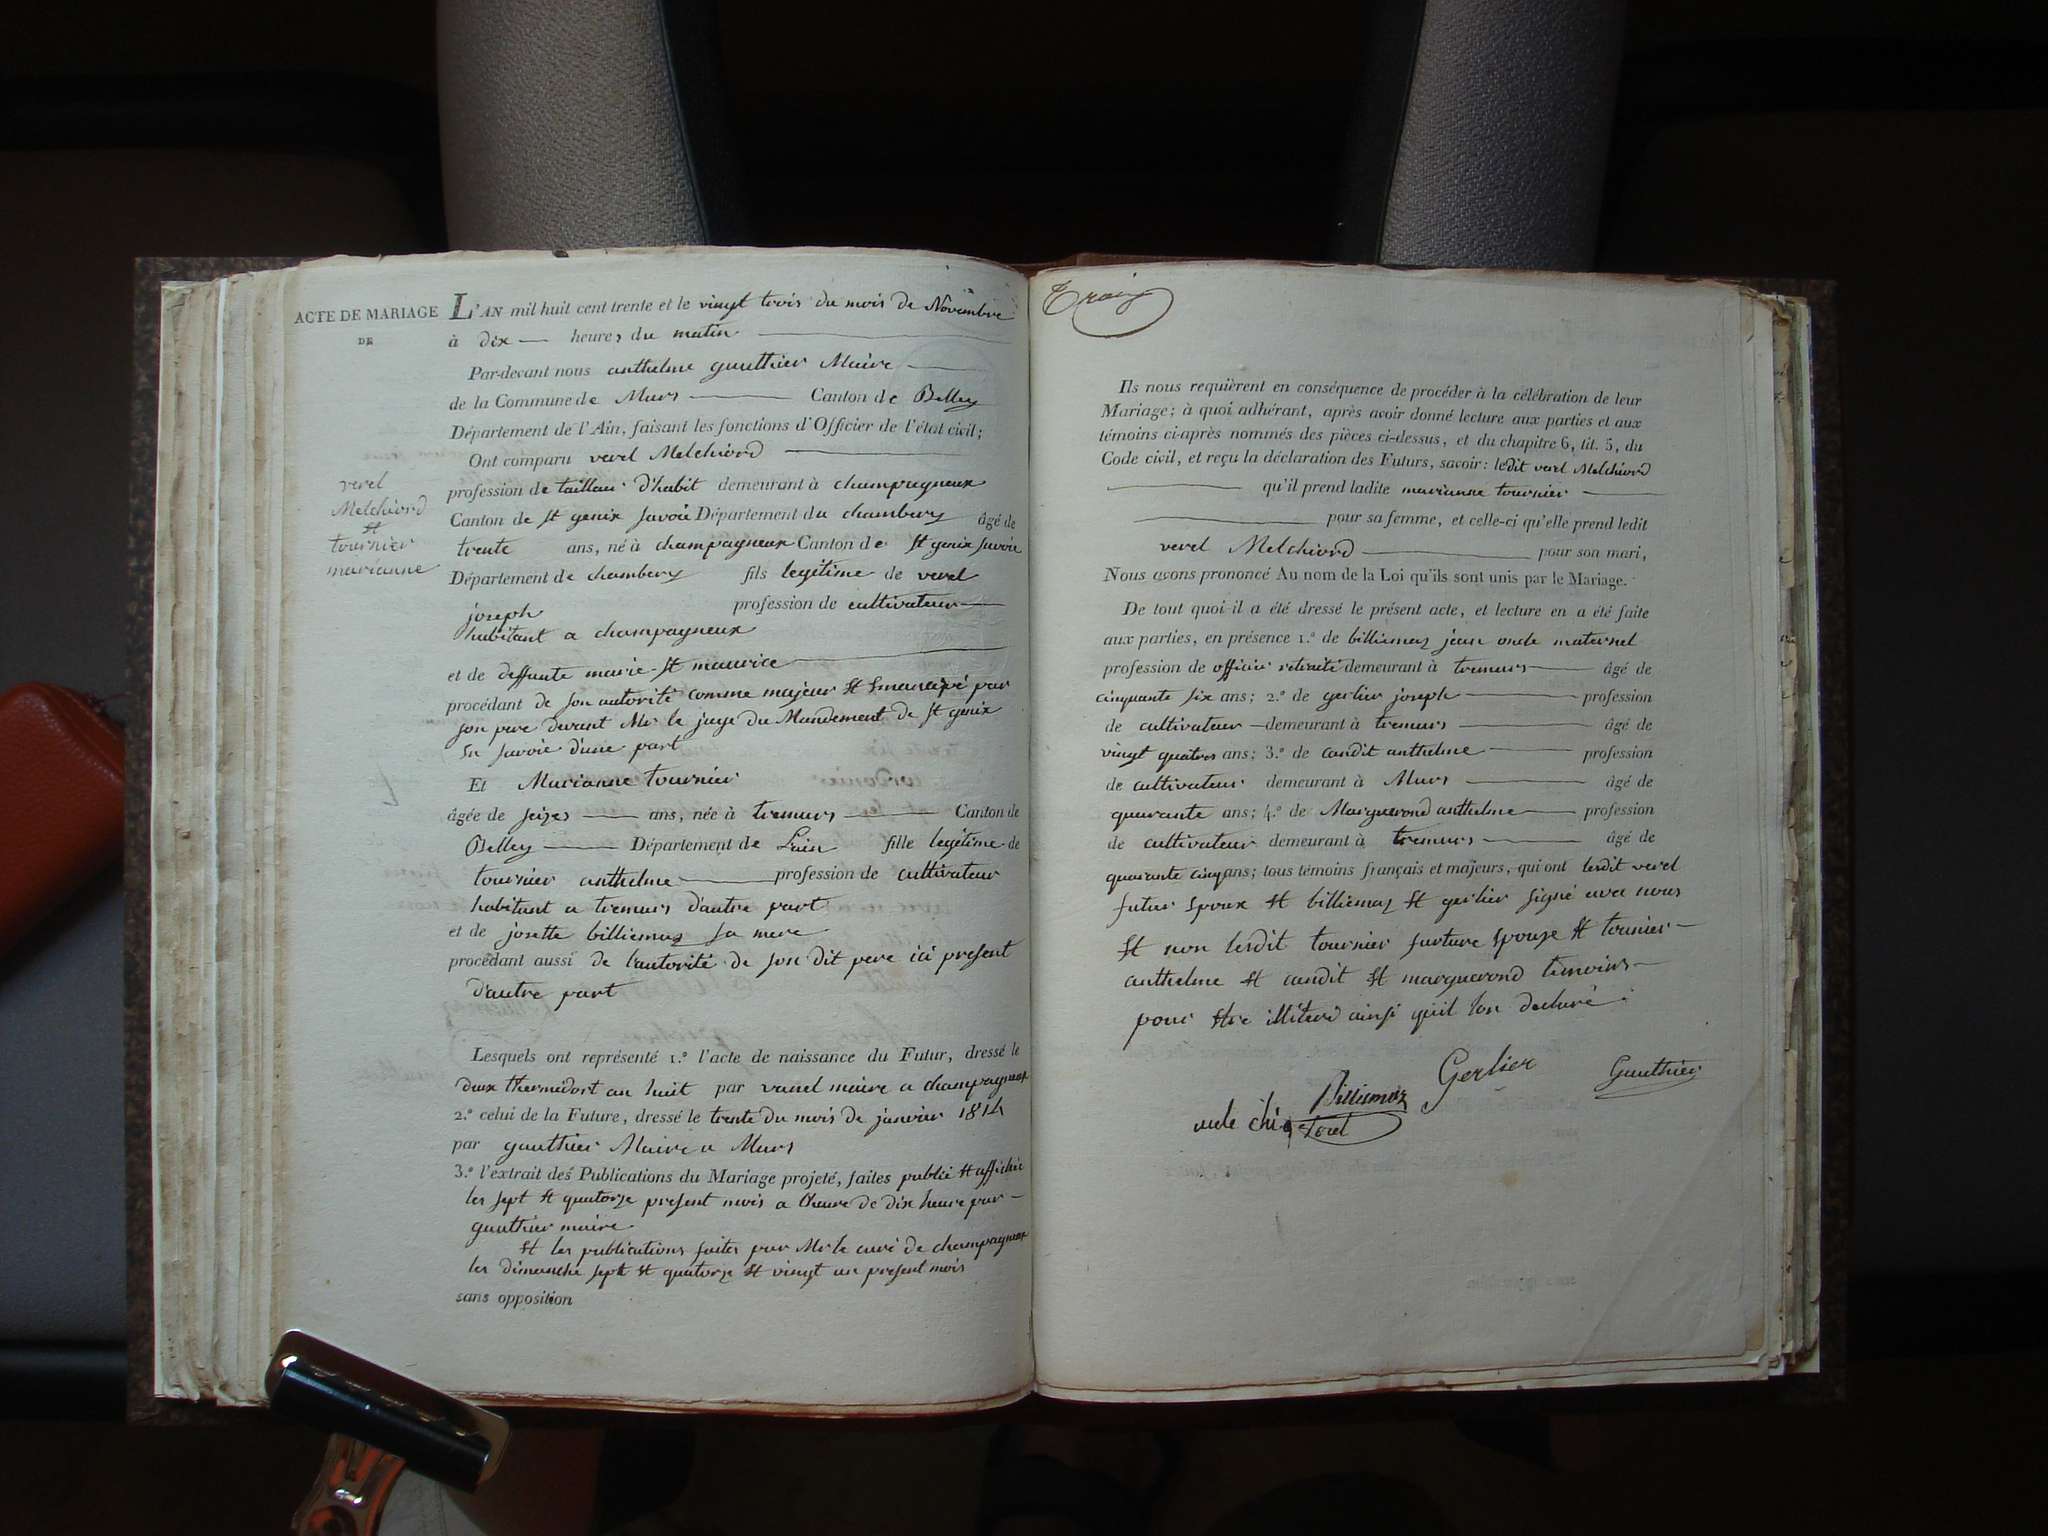 ACTE DE MARIAGE
DE
verel
Melchiord
Et
tournier
marianne
L'AN mil huit cent trente et le vingt trois du mois de Novembre
à dix heures du matin
Par-devant nous anthelme gauthier Maire
de la Commune de Murs Canton de Belley
Département de l'Ain, faisant les fonctions d'Officier de l'état civil;
Ont comparu verel Melchiord
profession de tailleur d'habit demeurant à champagneux
Canton de St genix Savoie Département du chambery âgé de
trente ans, né à champagneux Canton de St genix Savoie
Département de chambery fils legitime de verel
joseph profession de cultivateur
habitant a champagneux
et de deffunte marie St maurice
procédant de son autorité comme majeur Et Emancipé par
son pere devant Mr le juge du Mandement de St genix
En Savoie d'une part
Et Marianne tournier
âgée de seizes ans, née à tremurs Canton de
Belley Département de Lain fille legitime de
tournier anthelme profession de cultivateur
habitant a tremurs d'autre part
et de josette billiemaz sa mere
procédant aussi de l'autorité de son dit pere ici present
d'autre part
Lesquels ont représenté 1.º l'acte de naissance du Futur, dressé le
deux thermidort an huit par maire a champagneux
2.º celui de la Future, dressé le trente du mois de janvier 1814
par gauthier Maire a Murs
3.º l'extrait des Publications du Mariage projeté, faites publié Et affiché
les sept Et quatorze present mois a l'heure de dix heure par
gauthier maire
Et les publications faites par Mr le curé de champagneux
les dimanche sept Et quatorze Et vingt un present mois
sans opposition
Ils nous requièrent en conséquence de procéder à la célébration de leur
Mariage; à quoi adhérant, après avoir donné lecture aux parties et aux
témoins ci-après nommés des pièces ci-dessus, et du chapitre 6, tit. 5, du
Code civil, et reçu la déclaration des Futurs, savoir: ledit verel Melchiord
qu'il prend ladite marianne tournier
pour sa femme, et celle-ci qu'elle prend ledit
verel Melchiord pour son mari,
Nous avons prononcé Au nom de la Loi qu'ils sont unis par le Mariage.
De tout quoi il a été dressé le présent acte, et lecture en a été faite
aux parties, en présence 1.º de billiemaz jean oncle maternel
profession de officier retraité demeurant à tremurs âgé de
cinquante six ans; 2.º de gerlier joseph profession
de cultivateur demeurant à tremurs âgé de
vingt quatres ans; 3.º de candit anthelme profession
de cultivateur demeurant à Murs âgé de
quarante ans; 4.º de Marguerond anthelme profession
de cultivateur demeurant à tremurs âgé de
quarante cinq ans; tous témoins français et majeurs, qui ont lesdit verel
futur Epoux Et billiemaz Et gerlier signé avec nous
Et non lesdit tournier furture Epouze Et tournier
anthelme Et candit Et marguerond temoins
pour Etre illiteré ainsi quil lon declaré
Billiemaz Gerlier Gauthier